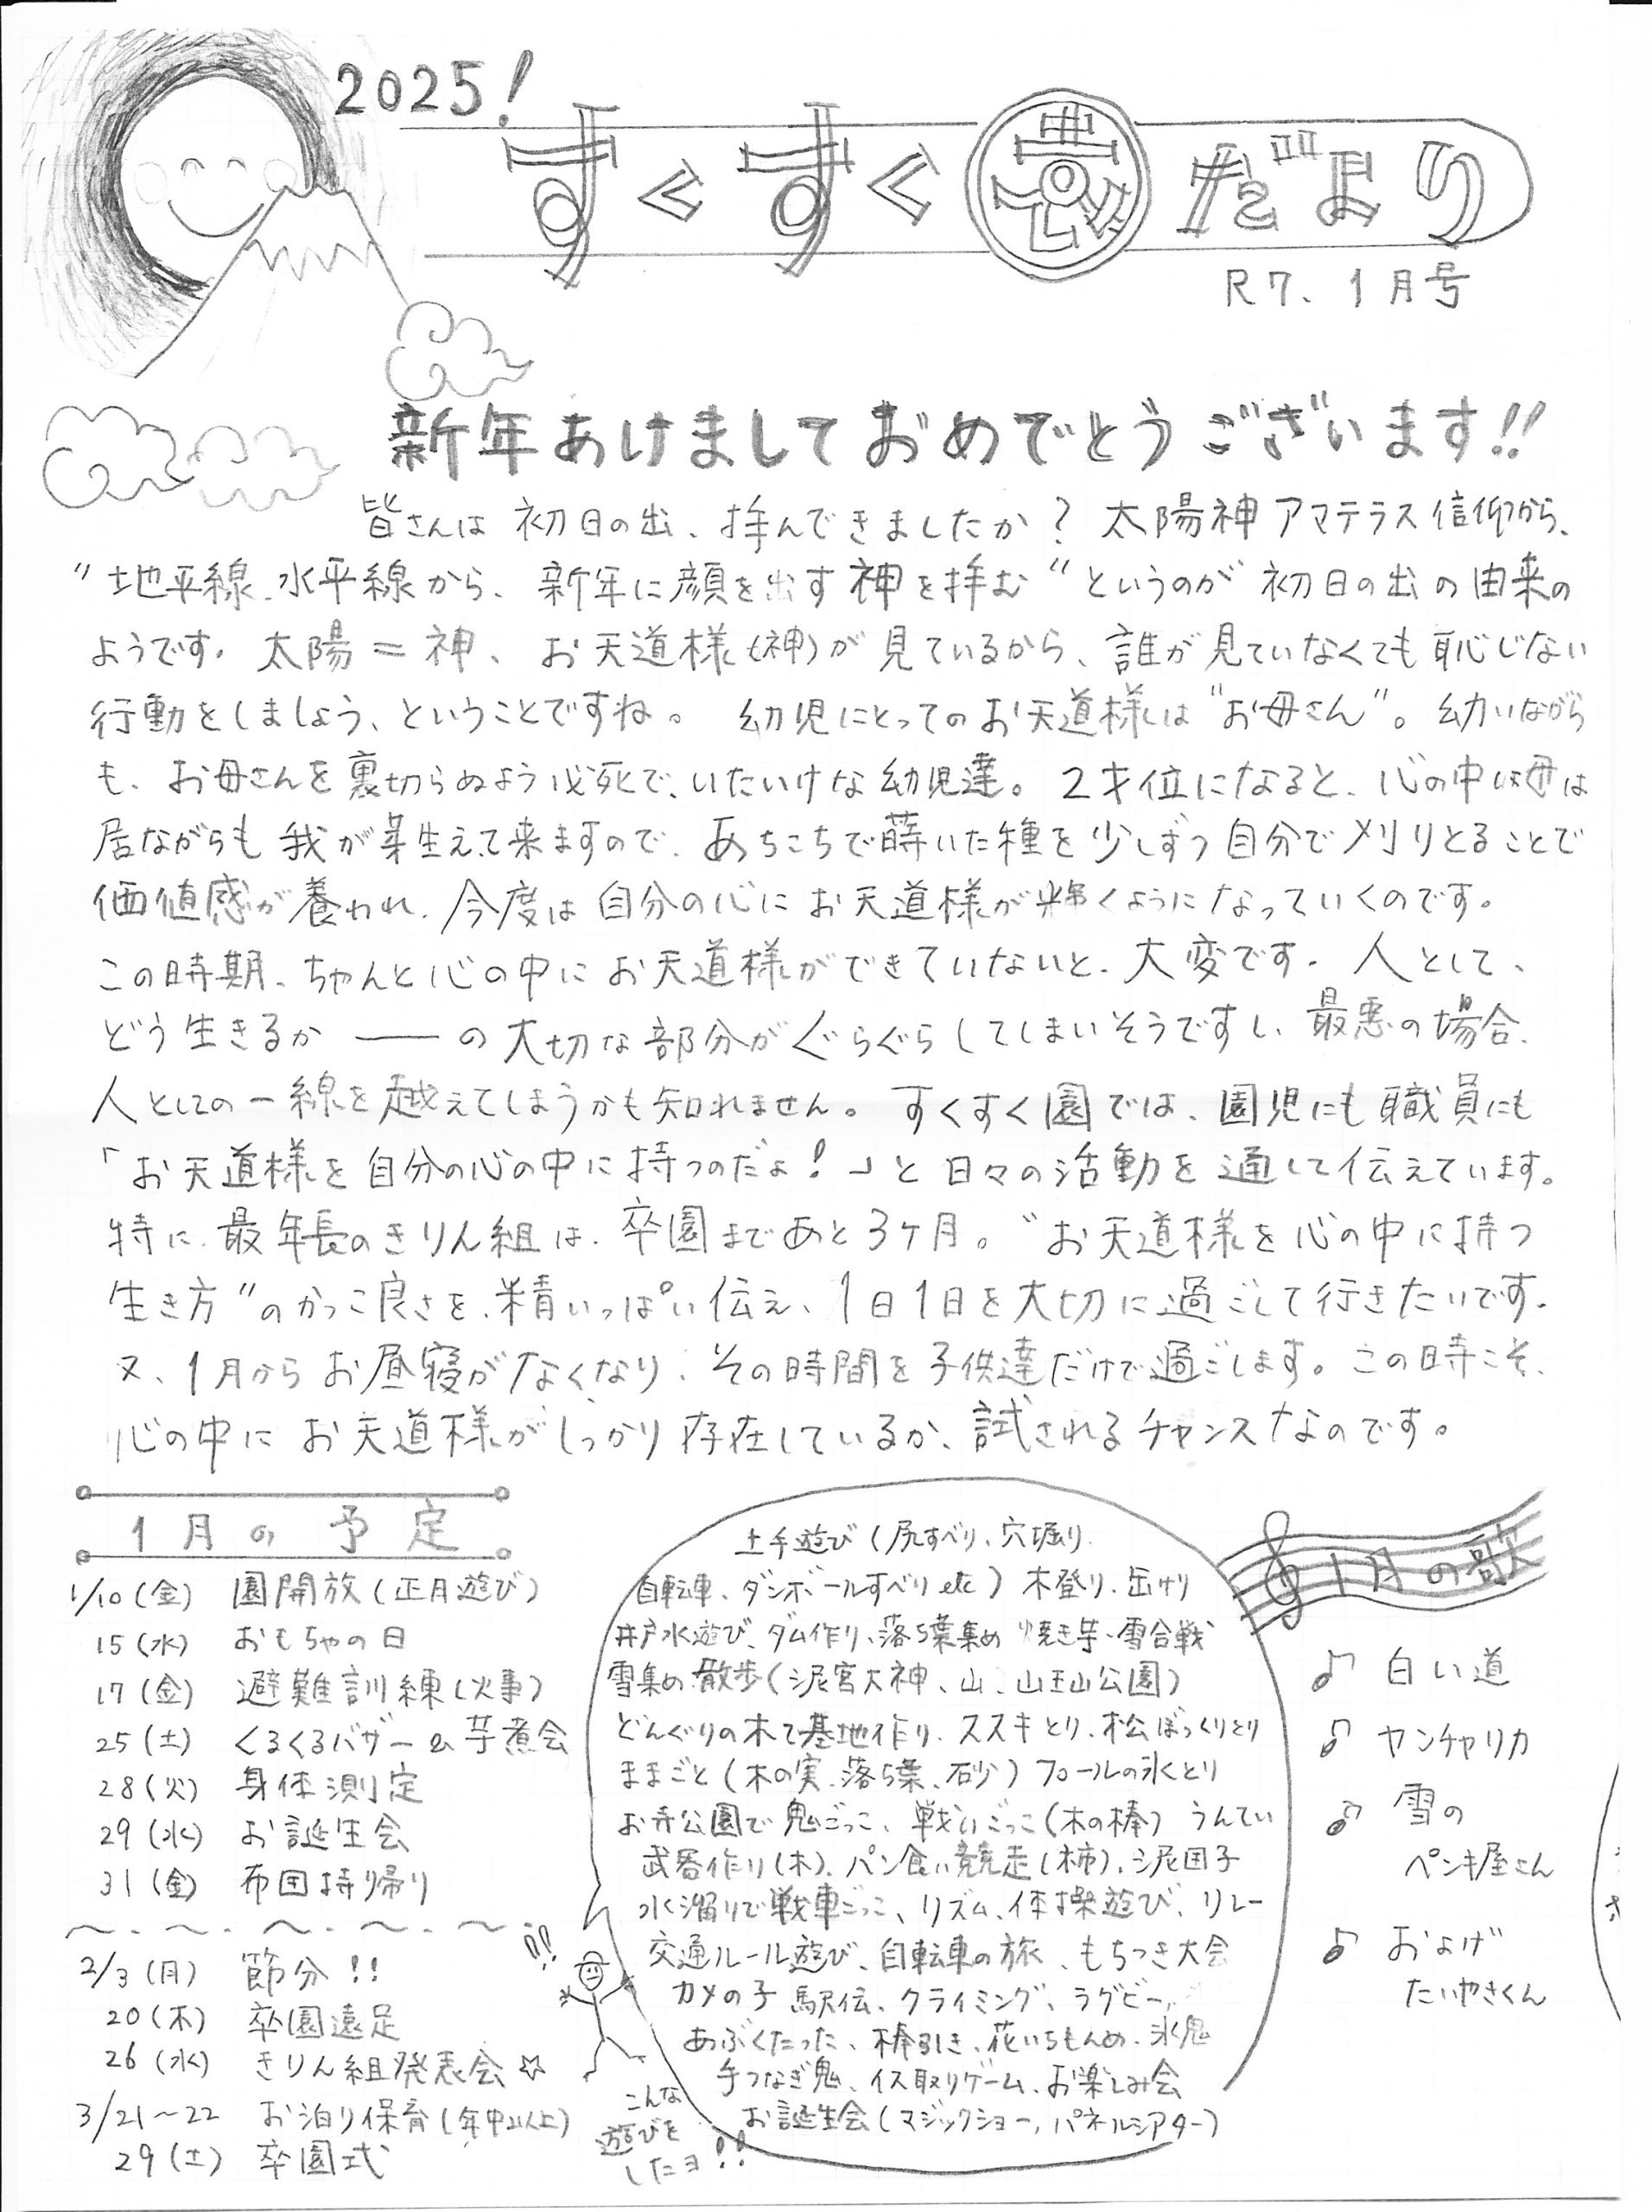 2025!
すくすく園だより
R7.1月号
新年あけましておめでとうございます!!
皆さんは 初日の出、拝んできましたか? 太陽神アマテラス信仰から、
"地平線、水平線から、新年に顔を出す神を拝む"というのが初日の出の由来の
ようです。太陽=神、お天道様(神)が見ているから、誰が見ていなくても恥じない
行動をしましょう、ということですね。幼児にとってのお天道様は"お母さん"。幼いながら
も、お母さんを裏切らぬよう必死で、いたいけな幼児達。2才位になると、心の中に母は
居ながらも我が芽生えて来ますので、あちこちで蒔いた種を少しずつ自分で刈りとることで
価値感が養われ、今度は自分の心にお天道様が輝くようになっていくのです。
この時期、ちゃんと心の中にお天道様ができていないと、大変です。人として、
どう生きるか――の大切な部分がぐらぐらしてしまいそうですし、最悪の場合、
人としての一線を越えてしまうかも知れません。すくすく園では、園児にも職員にも
「お天道様を自分の心の中に持つのだよ!」と日々の活動を通して伝えています。
特に、最年長のきりん組は、卒園まであと3ヶ月。"お天道様を心の中に持つ
生き方"のかっこ良さを、精いっぱい伝え、1日1日を大切に過ごして行きたいです。
又、1月からお昼寝がなくなり、その時間を子供達だけで過ごします。この時こそ、
心の中にお天道様がしっかり存在しているか、試されるチャンスなのです。
1月の予定
1/10(金) 園開放(正月遊び)
15(水) おもちゃの日
17(金) 避難訓練(火事)
25(土) くるくるバザー&芋煮会
28(火) 身体測定
29(水) お誕生会
31(金) 布団持り帰り
2/3(月) 節分!!
20(木) 卒園遠足
26(水) きりん組発表会☆
3/21~22 お泊り保育(年中以上)
29(土) 卒園式
土手遊び(尻すべり、穴堀り
自転車、ダンボールすべりetc) 木登り、缶けり
井戸水遊び、ダム作り、落ち葉集め 焼き芋、雪合戦
雪集め 散歩(泥宮大神、山、山王山公園)
どんぐりの木で基地作り、ススキとり、松ぼっくりとり
ままごと(木の実、落ち葉、砂) プールの氷とり
お寺公園で鬼ごっこ、戦いごっこ(木の棒) うんてい
武器作り(木)、パン食い競走(柿)、泥団子
水溜りで戦車ごっこ、リズム、体操遊び、リレー
交通ルール遊び、自転車の旅、もちつき大会
カメの子 駅伝、クライミング、ラグビー、
あぶくたった、棒引き、花いちもんめ、氷鬼
手つなぎ鬼、イス取りゲーム、お楽しみ会
お誕生会(マジックショー、パネルシアター)
!!
こんな
遊びを
したヨ!!
1月の歌
♪ 白い道
♪ ヤンチャリカ
♪ 雪の
ペンキ屋さん
♪ およげ
たいやきくん